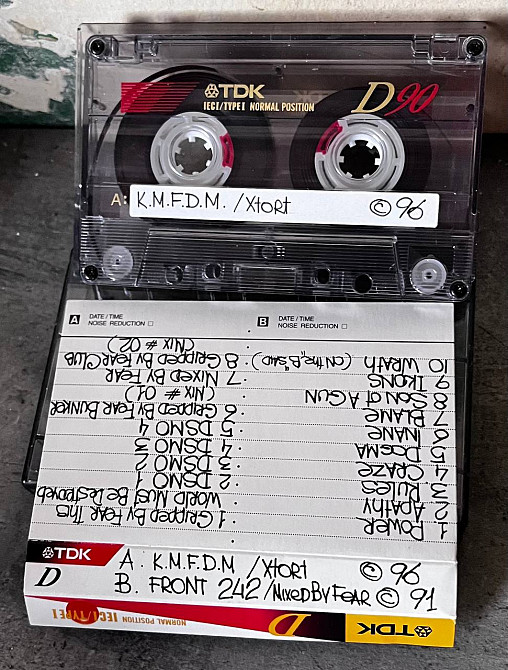 TDK
D90
IECI/TYPE I NORMAL POSITION
A: K.M.F.D.M. /Xtort © 96
A DATE/TIME
NOISE REDUCTION
B DATE/TIME
NOISE REDUCTION
1 POWER
2 APATHY
3 RULES
4 CRAZE
5 DOGMA
6 INANE
7 BLAME
8 SON OF A GUN
9 IKONS
10 WRATH (ON THE B SIDE)
1 GRIPPED BY FEAR THIS
WORLD MUST BE DESTROYED
2 DSMO 1
3 DSMO 2
4 DSMO 3
5 DSMO 4
6 GRIPPED BY FEAR BUNKER
(MIX # 01)
7 MIXED BY FEAR
8 GRIPPED BY FEAR CLUB
(MIX # 02)
TDK
D
A. K.M.F.D.M /Xtort © 96
B. FRONT 242/MIXED BY FEAR © 91
TDK
D
NORMAL POSITION IECI/TYPE I